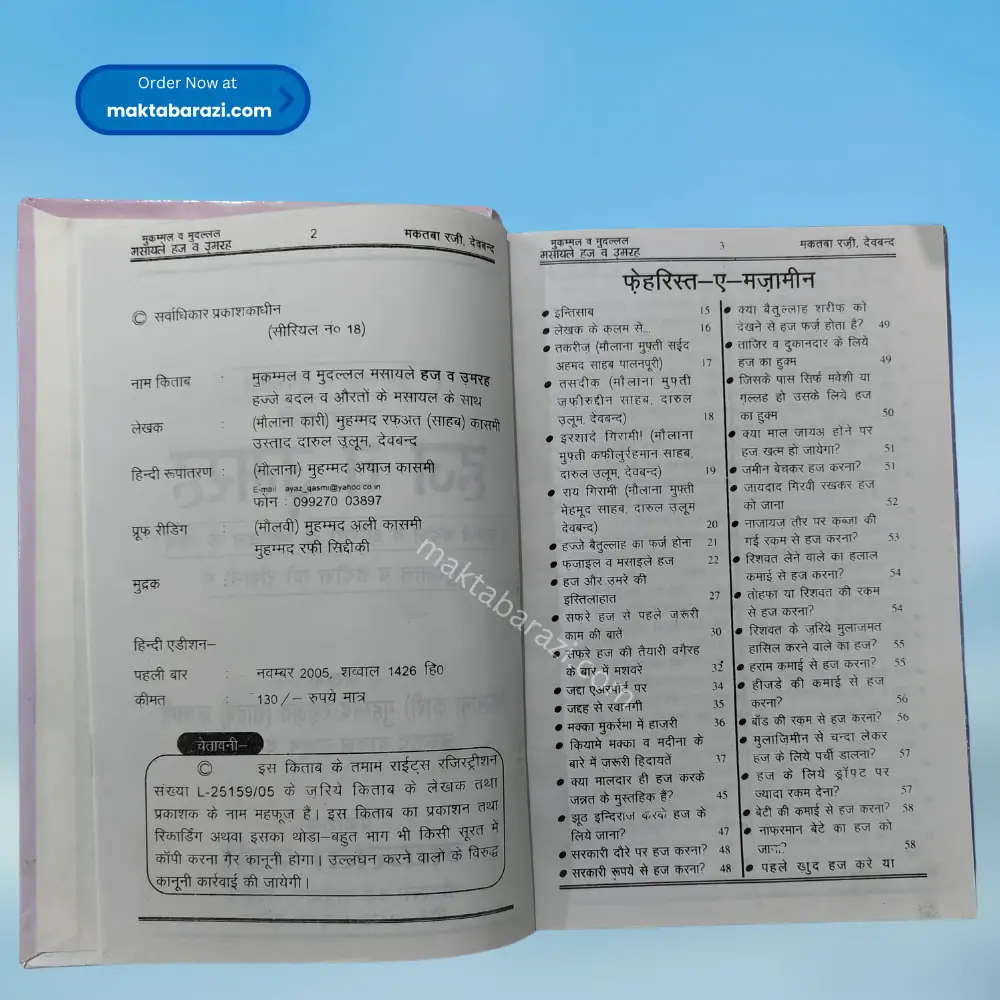 Order Now at
maktabarazi.com
मुकम्मल व मुदल्लल
मसायले हज व उ़मरह
2
मकतबा रज़ी, देवबन्द
© सर्वाधिकार प्रकाशकाधीन
(सीरियल न० 18)
नाम किताब : मुकम्मल व मुदल्लल मसायले हज व उ़मरह
हज्जे बदल व औरतों के मसायल के साथ
लेखक : (मौलाना कारी) मुहम्मद रफअत (साहब) कासमी
उस्ताद दारुल उ़लूम, देवबन्द
हिन्दी रूपातरण : (मौलाना) मुहम्मद अयाज़ कासमी
E-mail ayaz_qasmi@yahoo.co.in
फोन : 099270 03897
प्रूफ रीडिंग : (मौलवी) मुहम्मद अली कासमी
मुहम्मद रफी सिद्दीकी
मुद्रक
हिन्दी एडीशन–
पहली बार : नवम्बर 2005, शव्वाल 1426 हि०
कीमत : 130/– रुपये मात्र
चेतावनी–
© इस किताब के तमाम राईट्स रजिस्ट्रीशन
संख्या L-25159/05 के ज़रिये किताब के लेखक तथा
प्रकाशक के नाम महफूज़ हैं। इस किताब का प्रकाशन तथा
रिकार्डिंग अथवा इसका थोडा–बहुत भाग भी किसी सूरत में
कॉपी करना ग़ैर कानूनी होगा। उल्लघंन करने वालो के विरुद्ध
कानूनी कार्रवाई की जायेगी।
मुकम्मल व मुदल्लल
मसायले हज व उ़मरह
3
मकतबा रज़ी, देवबन्द
फ़ेहरिस्त–ए–मज़ामीन
● इन्तिसाब 15
● लेखक के क़लम से... 16
● तकरीज़ (मौलाना मुफ्ती सईद
अहमद साहब पालनपूरी) 17
● तसदीक (मौलाना मुफ्ती
ज़फीरुद्दीन साहब, दारुल
उ़लूम, देवबन्द) 18
● इरशादे गिरामी! (मौलाना
मुफ्ती कफीलुर्रहमान साहब,
दारुल उ़लूम, देवबन्द) 19
● राय गिरामी (मौलाना मुफ्ती
मेहमूद साहब, दारुल उ़लूम
देवबन्द) 20
● हज्जे बैतुल्लाह का फर्ज होना 21
● फजाइल व मसाइले हज 22
● हज और उ़मरे की
इस्तिलाहात 27
● सफरे हज से पहले ज़रूरी
काम की बातें 30
● सफरे हज की तैयारी वग़ैरह
के बारे में मशवरे 32
● जद्दा एअरपोर्ट पर 34
● जद्दह से रवानगी 35
● मक्का मुकर्रमा में हाजरी 36
● कियामे मक्का व मदीना के
बारे में जरूरी हिदायतें 37
● क्या मालदार ही हज करके
जन्नत के मुस्तहिक हैं? 45
● झूठ इन्दिराज करके हज के
लिये जाना? 47
● सरकारी दौरे पर हज करना? 48
● सरकारी रूपये से हज करना? 48
● क्या बैतुल्लाह शरीफ को
देखने से हज फर्ज़ होता है? 49
● ताजिर व दुकानदार के लिये
हज का हुक्म 49
● जिसके पास सिर्फ मवेशी या
ग़ल्लह हो उसके लिये हज
का हुक्म 50
● क्या माल जायअ़ होने पर
हज खत्म हो जायेगा? 51
● जमीन बेचकर हज करना? 51
● जायदाद गिरवी रखकर हज
को जाना 52
● नाजायज़ तौर पर कब्ज़ा की
गई रक़म से हज करना? 53
● रिशवत लेने वाले का हलाल
कमाई से हज करना? 54
● तोहफा या रिशवत की रकम
से हज करना? 54
● रिशवत के ज़रिये मुलाजमत
हासिल करने वाले का हज? 55
● हराम कमाई से हज करना? 55
● हीजड़े की कमाई से हज
करना? 56
● बॉंड की रकम से हज करना? 56
● मुलाजिमीन से चन्दा लेकर
हज के लिये पर्ची डालना? 57
● हज के लिये ड्रॉफ्ट पर
ज्यादा रकम देना? 57
● बेटी की कमाई से हज करना? 58
● नाफरमान बेटे का हज को
जाना? 58
● पहले खुद हज करे या
maktabarazi.com